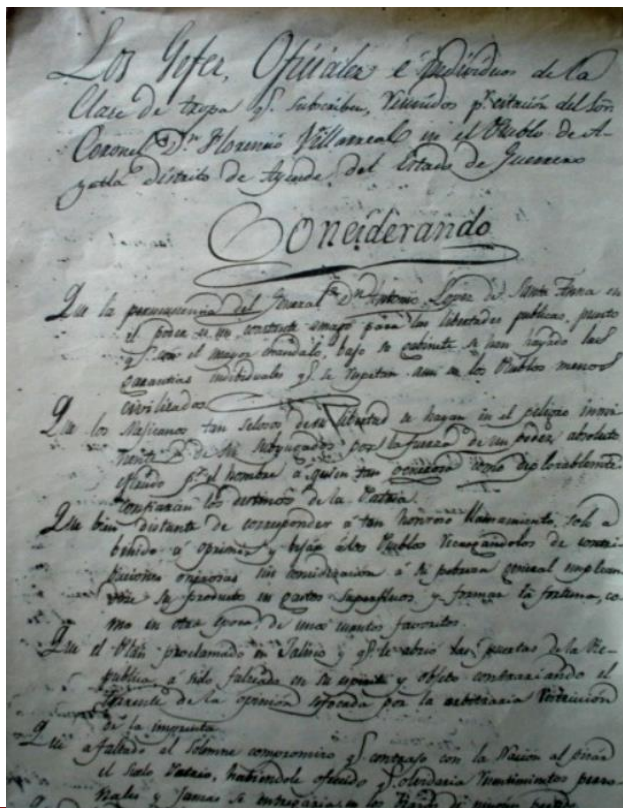 Los Gefes, Oficiales e individuos de la
Clase de tropa q.e subscriben, reunidos p.r citacion del Señ
Coronel D.n Florencio Villarreal en el Pueblo de A-
yutla distrito de Ayende, del Estado de Guerrero
Conciderando
Que la permanencia del General D.n Antonio Lopez de Santa Anna en
el poder es un constante amago para las libertades publicas, puesto
q.e con el mayor escándalo, bajo su gabinete se han hayado las
garantias individuales q.e se respetan aun en los Pueblos menos
civilizados
Que los Mejicanos tan selosos de su libertad se hayan en el peligro
de ser subyugados por la fuerza de un poder absoluto
p.r el hombre a quien tan generosa como deplorablemte
confiaran los destinos de la Patria.
Que bien distante de corresponder á tan honroso llamamiento, solo a
benido á oprimir y bejar á los Pueblos recargándolos de contri-
buciones onerosas sin concideración á su pobresa general emplean
dose su producto en gastos superfluos y formar la fortuna, co-
mo en otra época, de unos cuantos favoritos.
Que el Plan proclamado en Jalisco y q.e le abrió las puertas de la Re-
publica, á sido falseado en su espiritu y objeto contrariando el
torrente de la opinión sofocada por la arbitraria restricción
de la imprenta.
Que a faltado el solemne compromiso q.e contrajo con la Nación al pisar
el suelo Patrio, habiendole ofrecido q.e olvidaria resentimientos perso-
nales y jamas se entregaria en los